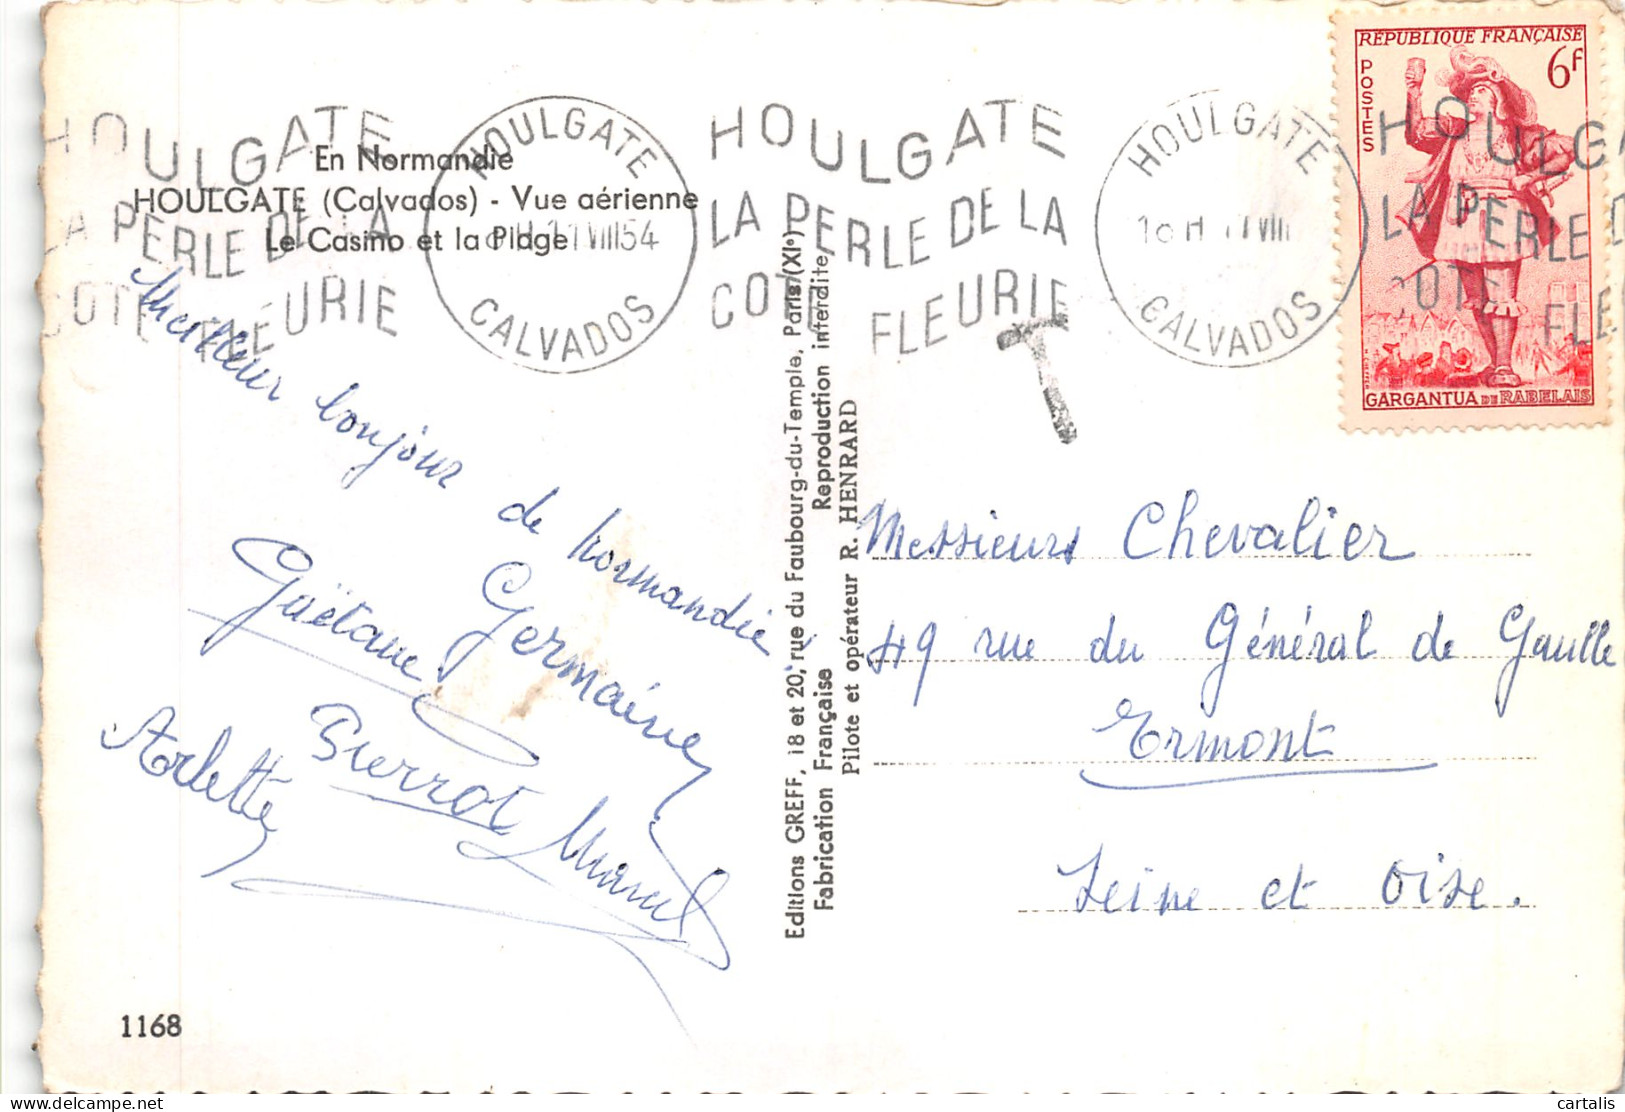 En Normandie
HOULGATE (Calvados) - Vue aérienne
Le Casino et la Plage
HOULGATE
LA PERLE DE LA
COTE FLEURIE
HOULGATE
VIII 54
CALVADOS
HOULGATE
LA PERLE DE LA
COTE FLEURIE
HOULGATE
VIII
CALVADOS
T
RÉPUBLIQUE FRANÇAISE
6F
POSTES
GARGANTUA DE RABELAIS
HOULGA
LA PERLE D
COTE FLE
Meilleur bonjour de Normandie
Germaine
Gaëtane
Pierrot
Arlette
Marcel
Editions GREFF, 18 et 20, rue du Faubourg-du-Temple, Paris (XIe)
Fabrication Française Reproduction interdite
Pilote et opérateur R. HENRARD
Messieurs Chevalier
49 rue du Général de Gaulle
Ermont
Seine et Oise.
1168
cartalis